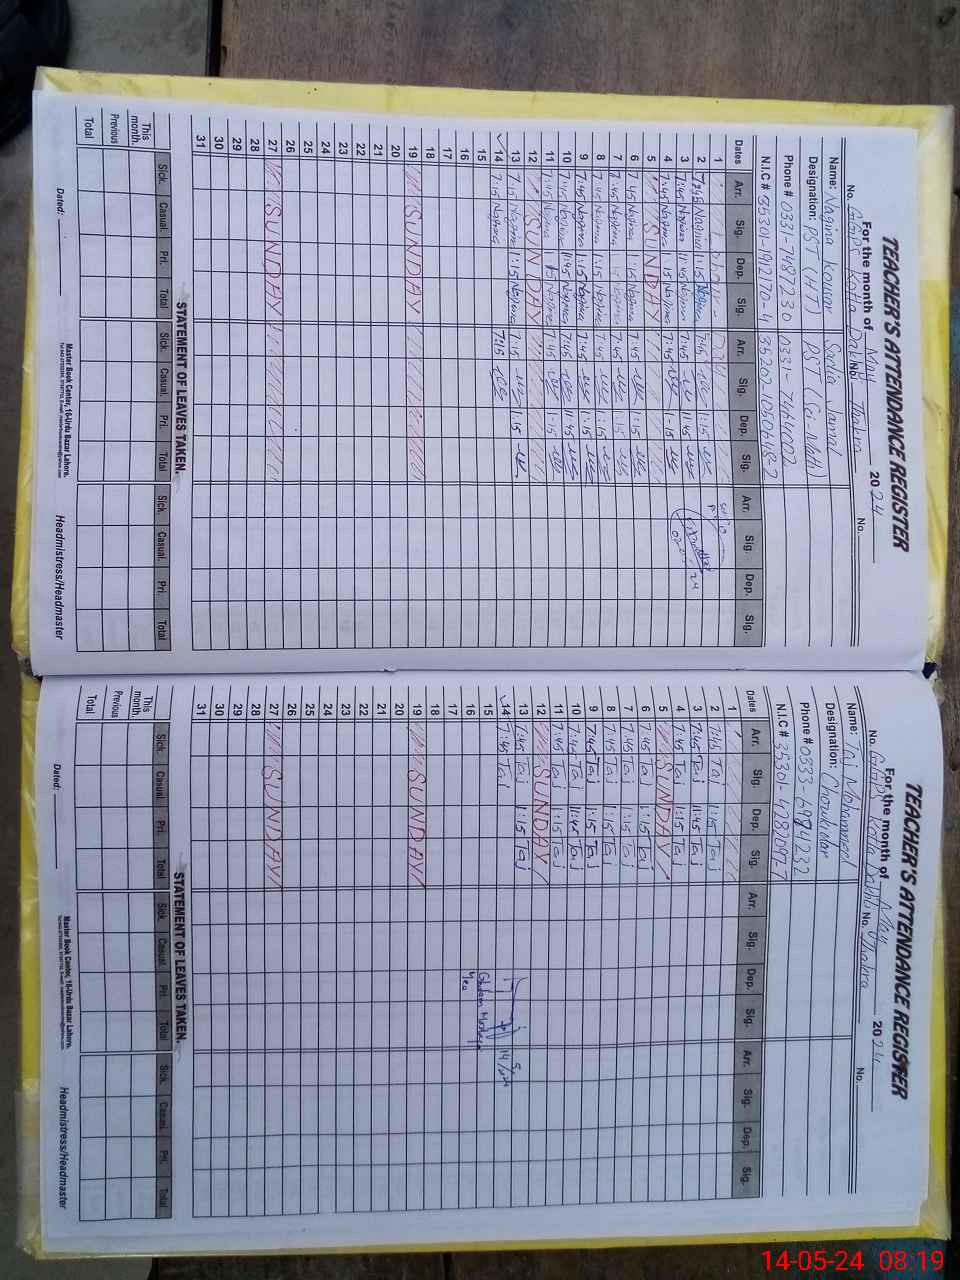 TEACHER'S ATTENDANCE REGISTER
For the month of May 2024
No. GGPS Kotla Dakhli Thakra No.
Name: Nagina Kouser Sadia Jamal
Designation: PST (HT) PST (Sci-Math)
Phone # 0331-7487230 0331-7464002
N.I.C # 35301-1912170-4
Dates Arr. Sig. Dep. Sig. Arr. Sig. Dep. Sig. Arr. Sig. Dep. Sig.
1
2 7:45 Nagina 1:15 Nagina 7:45 1:15
3 7:45 Nagina 11:45 Nagina 7:45 11:45
4 7:45 Nagina 1:15 Nagina 7:45 1:15
5 SUNDAY
6 7:45 Nagina 1:15 Nagina 7:45 1:15
7 7:45 Nagina 1:15 Nagina 7:45 1:15
8 7:45 Nagina 1:15 Nagina 7:45 1:15
9 7:45 Nagina 1:15 Nagina 7:45 1:15
10 7:45 Nagina 11:45 Nagina 7:45 11:45
11 7:45 Nagina 1:15 Nagina 7:45 1:15
12 SUNDAY
13 7:15 Nagina 1:15 Nagina 7:15 1:15
14 7:15 Nagina 7:15
15
16
17
18
19 SUNDAY
20
21
22
23
24
25
26
27 SUNDAY
28
29
30
31
STATEMENT OF LEAVES TAKEN.
Sick. Casual. Pri. Total Sick. Casual. Pri. Total Sick. Casual. Pri. Total
This month.
Previous
Total
Dated:
Master Book Center, 16-Urdu Bazar Lahore.
Headmistress/Headmaster
TEACHER'S ATTENDANCE REGISTER
For the month of May 2024
No. GGPS Kotla Dakhli Thakra No.
Name: Taj Mohammad
Designation: Chowkidar
Phone # 0333-6984232
N.I.C # 35301-4281097-7
Dates Arr. Sig. Dep. Sig. Arr. Sig. Dep. Sig. Arr. Sig. Dep. Sig.
1
2 7:45 Taj 1:15 Taj
3 7:45 Taj 11:45 Taj
4 7:45 Taj 1:15 Taj
5 SUNDAY
6 7:45 Taj 1:15 Taj
7 7:45 Taj 1:15 Taj
8 7:45 Taj 1:15 Taj
9 7:45 Taj 1:15 Taj
10 7:45 Taj 11:45 Taj
11 7:45 Taj 1:15 Taj
12 SUNDAY
13 7:45 Taj 1:15 Taj
14 7:45 Taj
15
16
17
18
19 SUNDAY
20
21
22
23
24
25
26
27 SUNDAY
28
29
30
31
STATEMENT OF LEAVES TAKEN.
Sick. Casual. Pri. Total Sick. Casual. Pri. Total Sick. Casual. Pri. Total
This month.
Previous
Total
Dated:
Master Book Center, 16-Urdu Bazar Lahore.
Headmistress/Headmaster
14-05-24 08:19